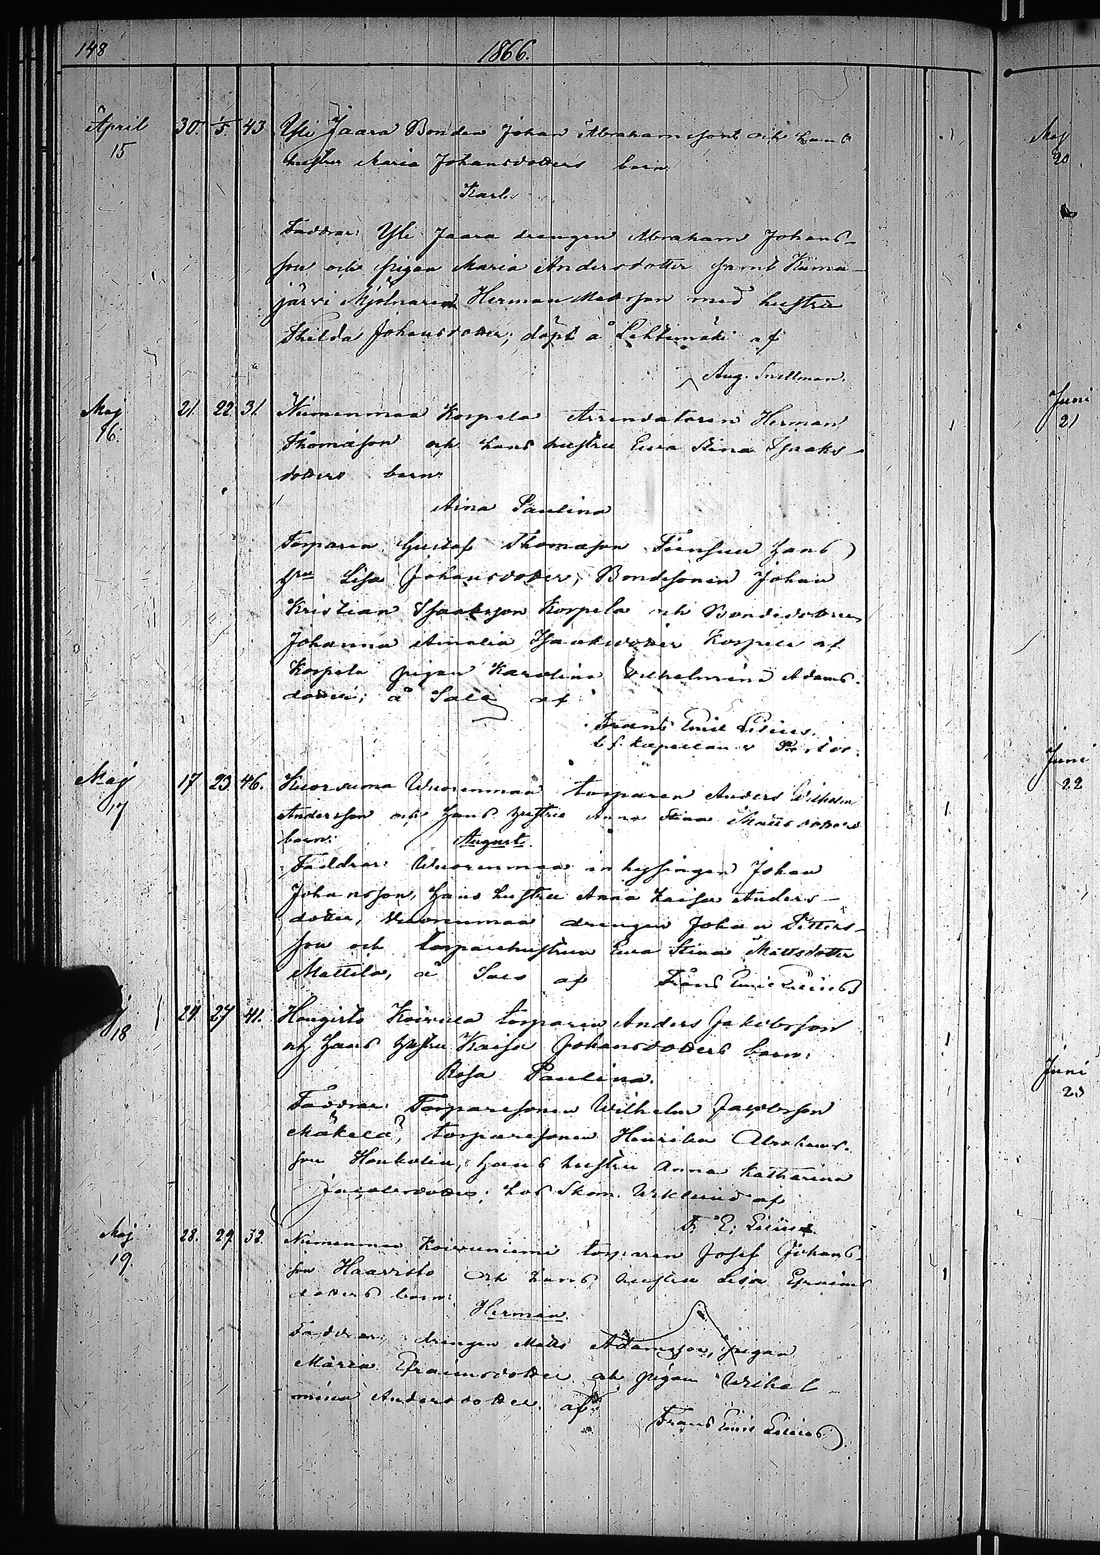 148
1866.
April 30. 1/5. 43 Yli Jaara Bonden Johan Abrahamsons och hans
15 hustru Maria Johansdotters barn
Karl.
Faddrar: Yli Jaara drengen Abraham Johans-
son och pigan Maria Andersdotter samt Kuma-
järvi Mjölnaren Herman Mattsson med hustru
Johansdotter; döpt å Lehtimäki af
Aug. Snellman.
Maj 21. 22 31. Niemenmaa Korpela Arrendatorn Herman
16. Thomasson och hans hustru Eva Stina Isaks-
dotters barn:
Aina Paulina
Torparen Gustaf Thomasson hans
hru Lisa Johansdotter, Bondesonen Johan
Kristian Isaaksson Korpela och Bondedottren
Johanna Amalia Isaaksdotter Korpela af
Korpela pigan Karolina Vilhelmina Adams-
dotter; å Salo af
Frans Emil Lilius.
t.f. Kapellan
Maj 17 23 46. Wuorenmaa torparen Anders Wilhelm
17 Andersson och hans hustru Anna Stina dotters
barn: August.
Faddrar: Wuorenmaa inhysingen Johan
Johansson, hans hustru Anna Kaisa Anders-
dotter, Wuorenmaa drengen Johan Petters-
son och torparehustrun Eva Stina Mattsdotter
Mattila, å Salo af Frans Emil Lilius
24 27 41. Hongisto Koivula torparen Anders Jakobsson
18 och hans hustru Kaisa Johansdotters barn:
Rosa Paulina.
Faddrar: Torparesonen Wilhelm Jacobsson
Mäkelä, torparesonen Henrik Abrahams-
son hans hustru Anna Katharina
Jacobsdotter: hos Skom. Wiklund af
F. E. Lilius
Maj 28. 29. 32. Niemenmaa Koivuniemi torparen Josef Johans-
19. son Haavisto och hans hustru Lisa Efraims
dotters barn:
Herman.
Faddrar: drengen Matts Adamsson, pigan
Maria Efraimsdotter och pigan Wilhel-
mina Andersdotter. af
Frans Emil Lilius
Maj
20
Juni
21
Juni
22
Juni
23